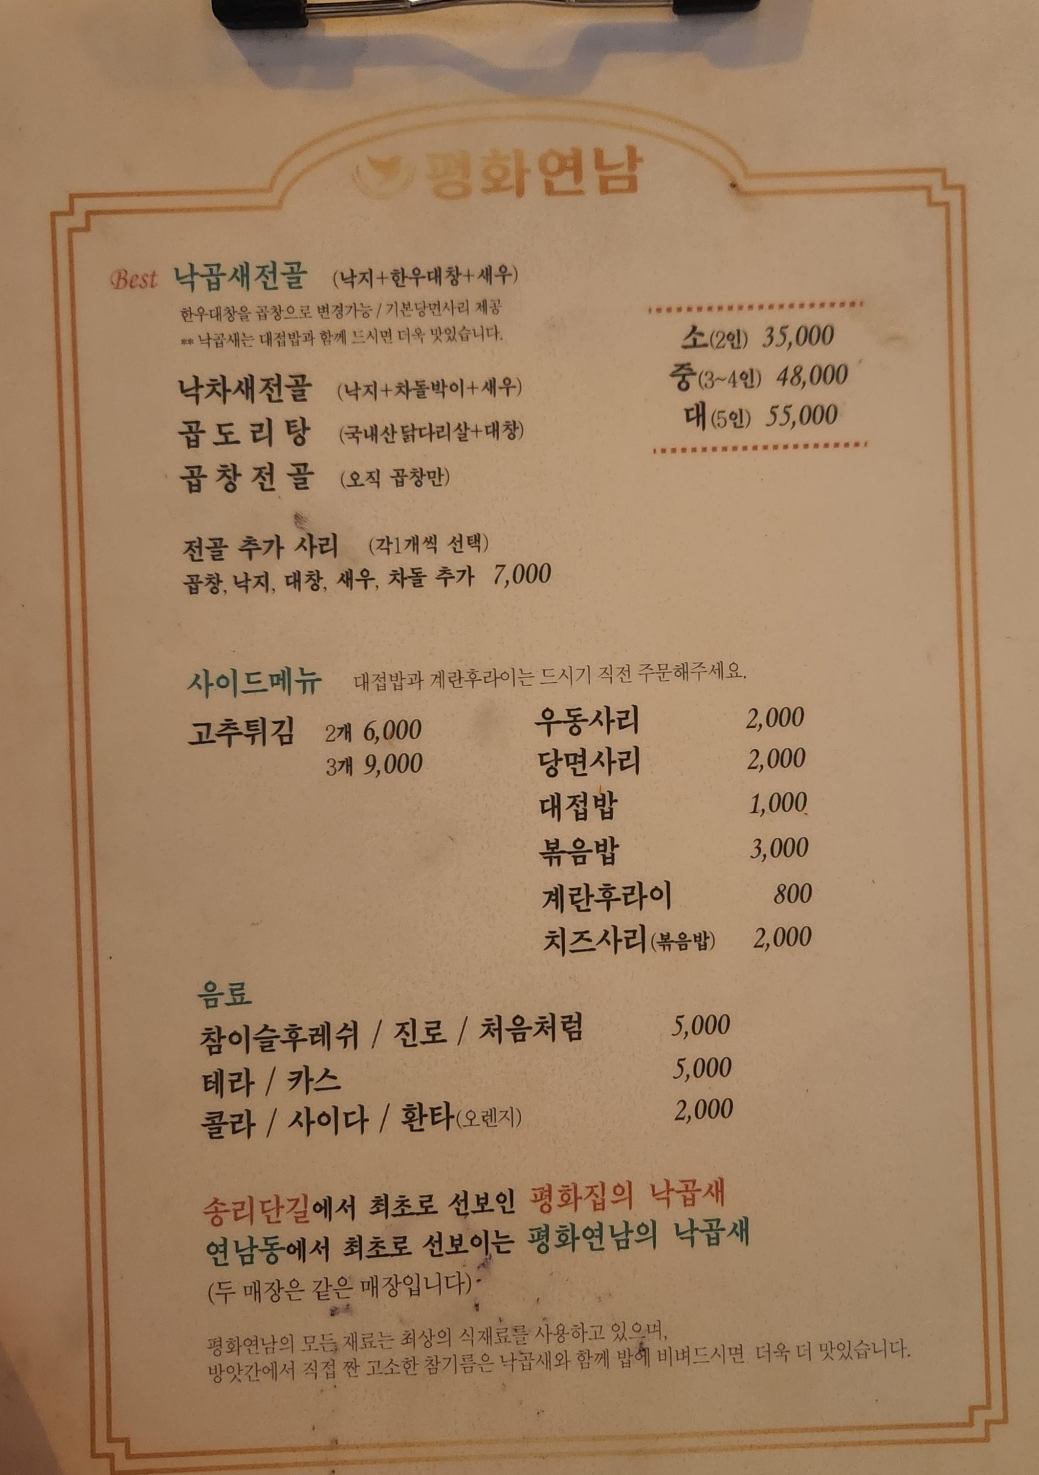 평화연남
Best 낙곱새전골 (낙지+한우대창+새우)
한우대창을 곱창으로 변경가능 / 기본당면사리 제공
** 낙곱새는 대접밥과 함께 드시면 더욱 맛있습니다.
소(2인) 35,000
중(3~4인) 48,000
대(5인) 55,000
낙차새전골 (낙지+차돌박이+새우)
곱도리탕 (국내산닭다리살+대창)
곱창전골 (오직 곱창만)
전골 추가 사리 (각1개씩 선택)
곱창, 낙지, 대창, 새우, 차돌 추가 7,000
사이드메뉴 대접밥과 계란후라이는 드시기 직전 주문해주세요.
고추튀김 2개 6,000
3개 9,000
우동사리 2,000
당면사리 2,000
대접밥 1,000
볶음밥 3,000
계란후라이 800
치즈사리(볶음밥) 2,000
음료
참이슬후레쉬 / 진로 / 처음처럼 5,000
테라 / 카스 5,000
콜라 / 사이다 / 환타(오렌지) 2,000
송리단길에서 최초로 선보인 평화집의 낙곱새
연남동에서 최초로 선보이는 평화연남의 낙곱새
(두 매장은 같은 매장입니다)
평화연남의 모든 재료는 최상의 식재료를 사용하고 있으며,
방앗간에서 직접 짠 고소한 참기름은 낙곱새와 함께 밥에 비벼드시면 더욱 더 맛있습니다.